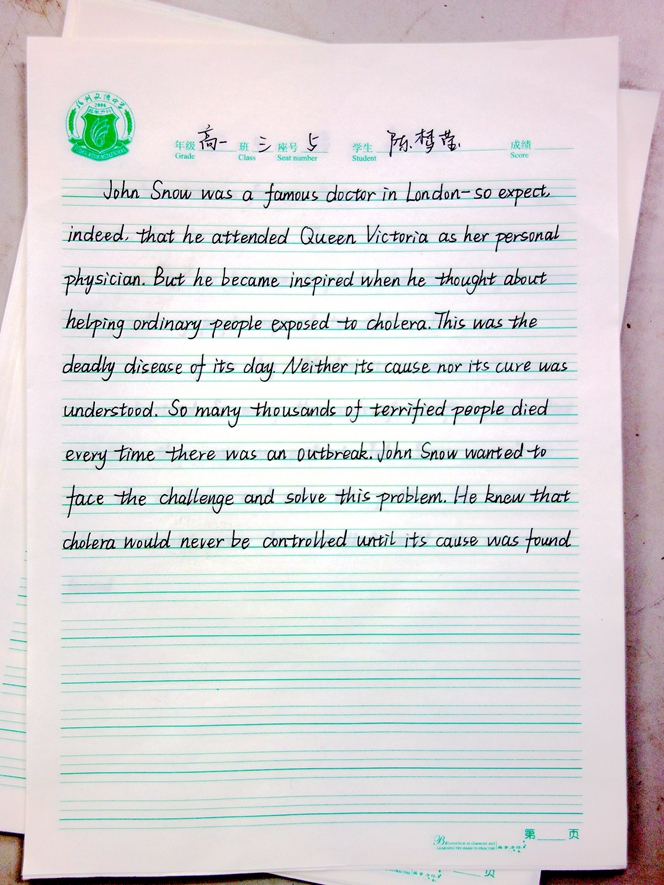 年级 高一 班 三 座号 5 学生 陈梦莹 成绩
Grade Class Seat number Student Score
John Snow was a famous doctor in London-so expect,
indeed, that he attended Queen Victoria as her personal
physician. But he became inspired when he thought about
helping ordinary people exposed to cholera. This was the
deadly disease of its day. Neither its cause nor its cure was
understood. So many thousands of terrified people died
every time there was an outbreak. John Snow wanted to
face the challenge and solve this problem. He knew that
cholera would never be controlled until its cause was found
第 页
页